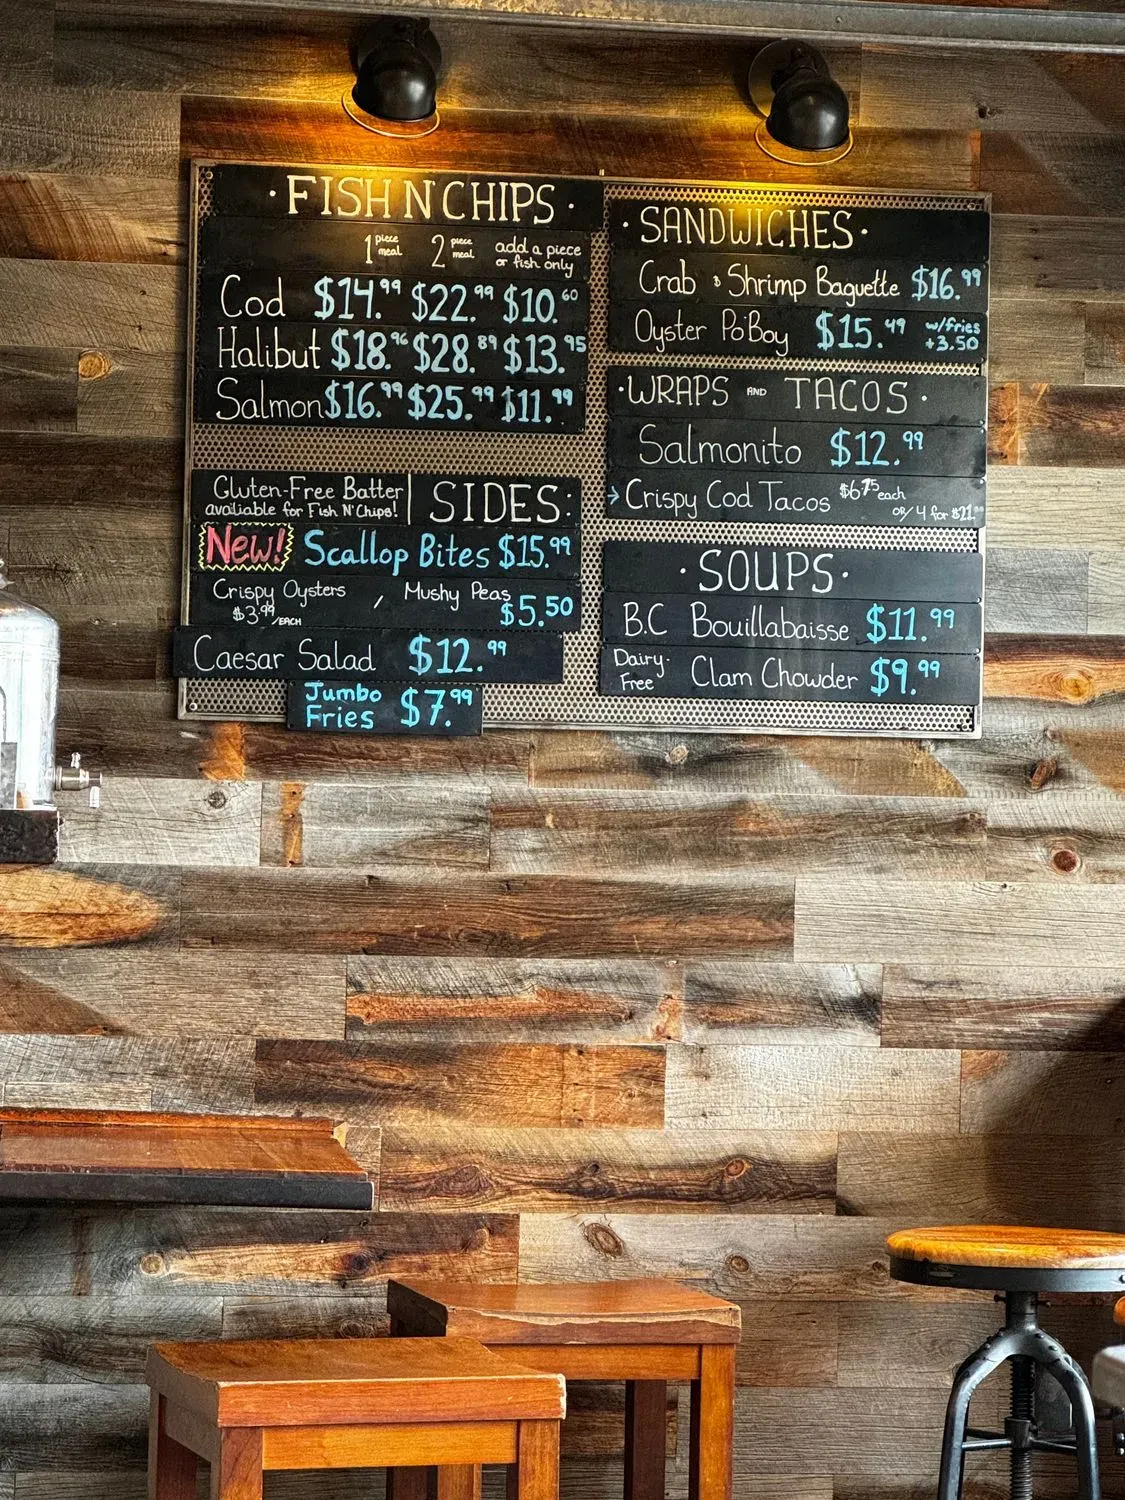 · FISH N' CHIPS ·
1 piece meal 2 piece meal add a piece or fish only
Cod $14.99 $22.99 $10.60
Halibut $18.96 $28.89 $13.95
Salmon $16.99 $25.99 $11.99
Gluten-Free Batter
available for Fish N' Chips!
SIDES:
New! Scallop Bites $15.99
Crispy Oysters $3.99/EACH , Mushy Peas $5.50
Caesar Salad $12.99
Jumbo Fries $7.99
· SANDWICHES ·
Crab & Shrimp Baguette $16.99
Oyster Po'Boy $15.49 w/fries +3.50
· WRAPS AND TACOS ·
Salmonito $12.99
Crispy Cod Tacos $6.75 each
OR/ 4 for
· SOUPS ·
B.C Bouillabaisse $11.99
Dairy-Free Clam Chowder $9.99